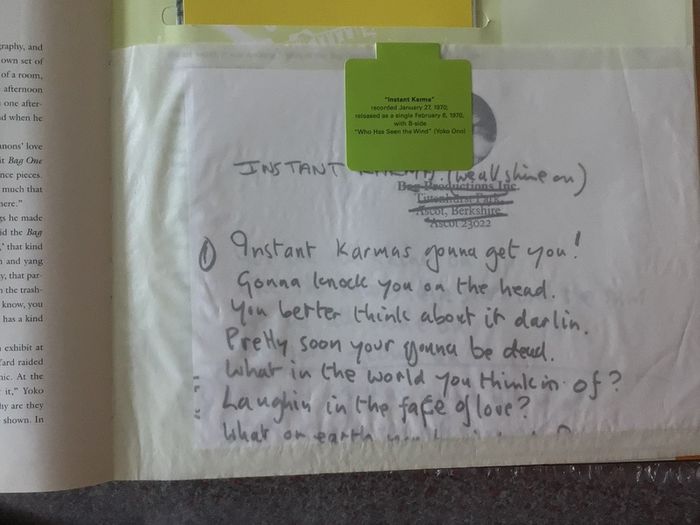 raphy, and
own set of
of a room,
afternoon
one after-
d when he
nons' love
it Bag One
nce pieces.
much that
here."
gs he made
id the Bag
,' that kind
n and yang
y, that par-
n the trash-
know, you
has a kind
exhibit at
Yard raided
nic. At the
it," Yoko
hy are they
shown. In
"Instant Karma"
recorded January 27, 1970;
released as a single February 6, 1970,
with B-side
"Who Has Seen the Wind" (Yoko Ono)
INSTANT (we all shine on)
Bag Productions Inc.
Tittenhurst Park,
Ascot, Berkshire.
Ascot 23022
1 Instant Karmas gonna get you!
Gonna knock you on the head.
You better think about it darlin.
Pretty soon your gonna be dead.
What in the world you thinkin of?
Laughin in the face of love?
What on earth